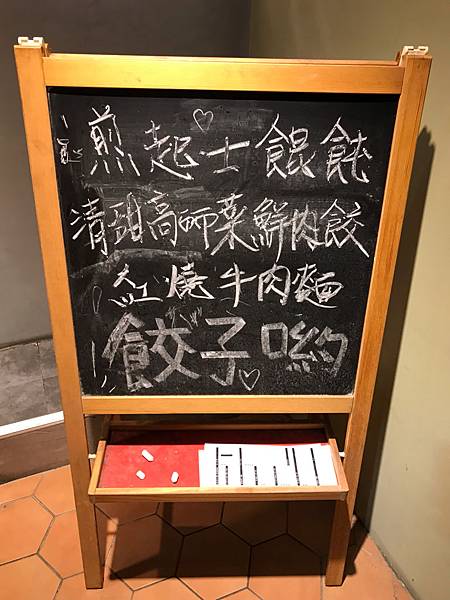 煎起士餛飩
清甜高師菜鮮肉餃
紅燒牛肉麵
餃子喲